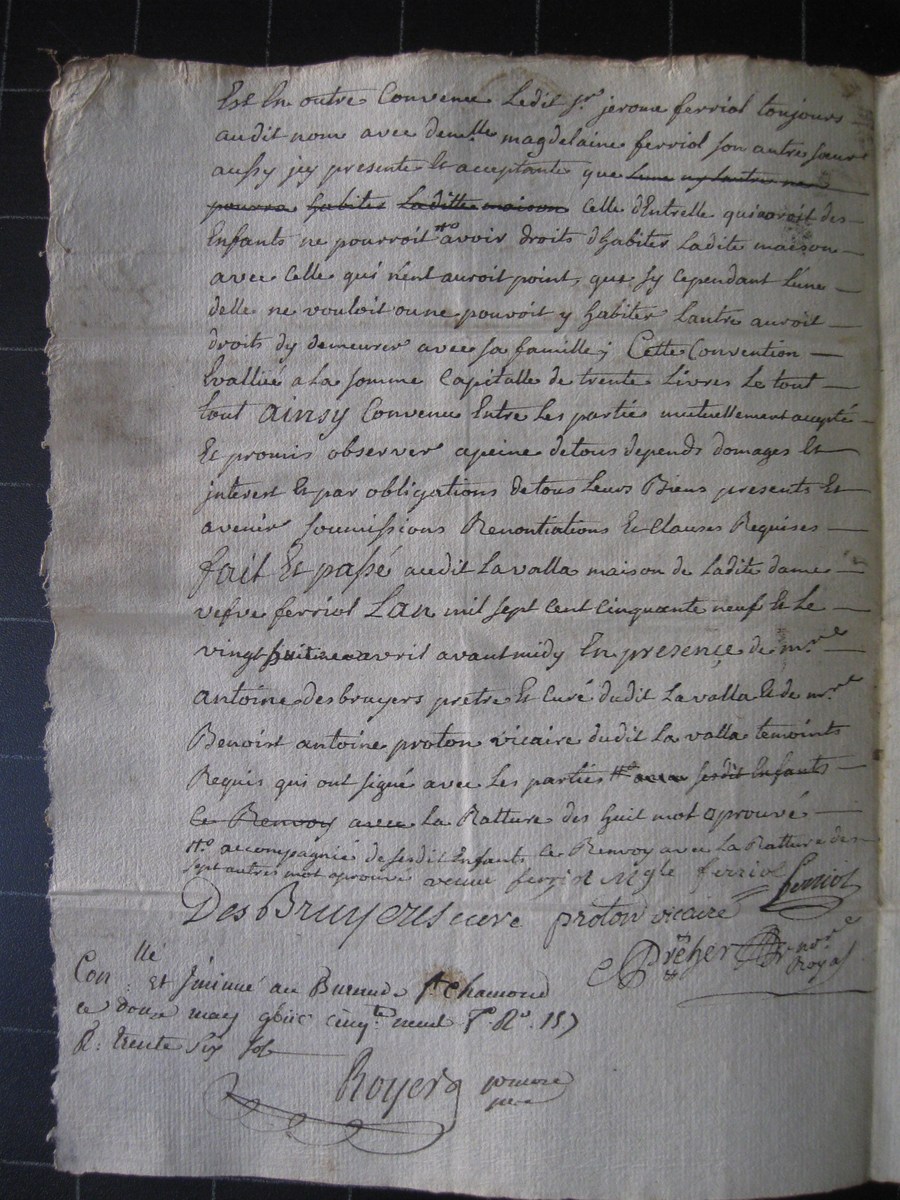 Est En outre Convenu Ledit Sr. jerome ferriol toujours
audit nom avec demelle magdelaine ferriol son autre sœur
aussy icy presente Et acceptante que Lune ny lautre ne
pourra habiter Laditte maison Celle dEntrelle qui auroit des
Enfants ne pourroit avoir droits dhabiter Ladite maison
avec Celle qui n'ent auroit point, que sy cependant L'une
delle ne vouloit ou ne pouvoit y habiter Lautre auroit
droits dy demeurer avec sa famille; Cette Convention
Evalluée a La somme Capitalle de trente Livres Le tout
tout ainsy Convenu Entre Les partie mutuellement accepté
Et promis observer apeine de tous depends domages Et
interest Et par obligations de tous Leurs Biens presents Et
avenir soumissions Renontiations Et Clauses Requises
fait Et passé audit Lavalla maison de Ladite dame
vefve ferriol Lan mil sept Cent Cinquante neuf Et Le
vingt huit avril avant midy En presence de mre
antoine desbruyers pretre Et Curé dudit Lavalla Et de mre
Benoist antoine proton vicaire dudit La valla temoints
Requis qui ont signé avec Les parties avec sesdit Enfants
Ce Renvoy avec La Ratture des huit mot aprouvé
accompagnée de sesdit Enfants Ce Renvoy avec La Ratture des
sept autres mot aprouvé veuve ferriol ferriol ferriol
DesBruyeres cure proton vicaire
Dreher nore Royal
Conllé Et Scinné au Bureau de St chamond
ce douze may cinqte neuf fo. Ro. 157
R: trente six sols
Royer